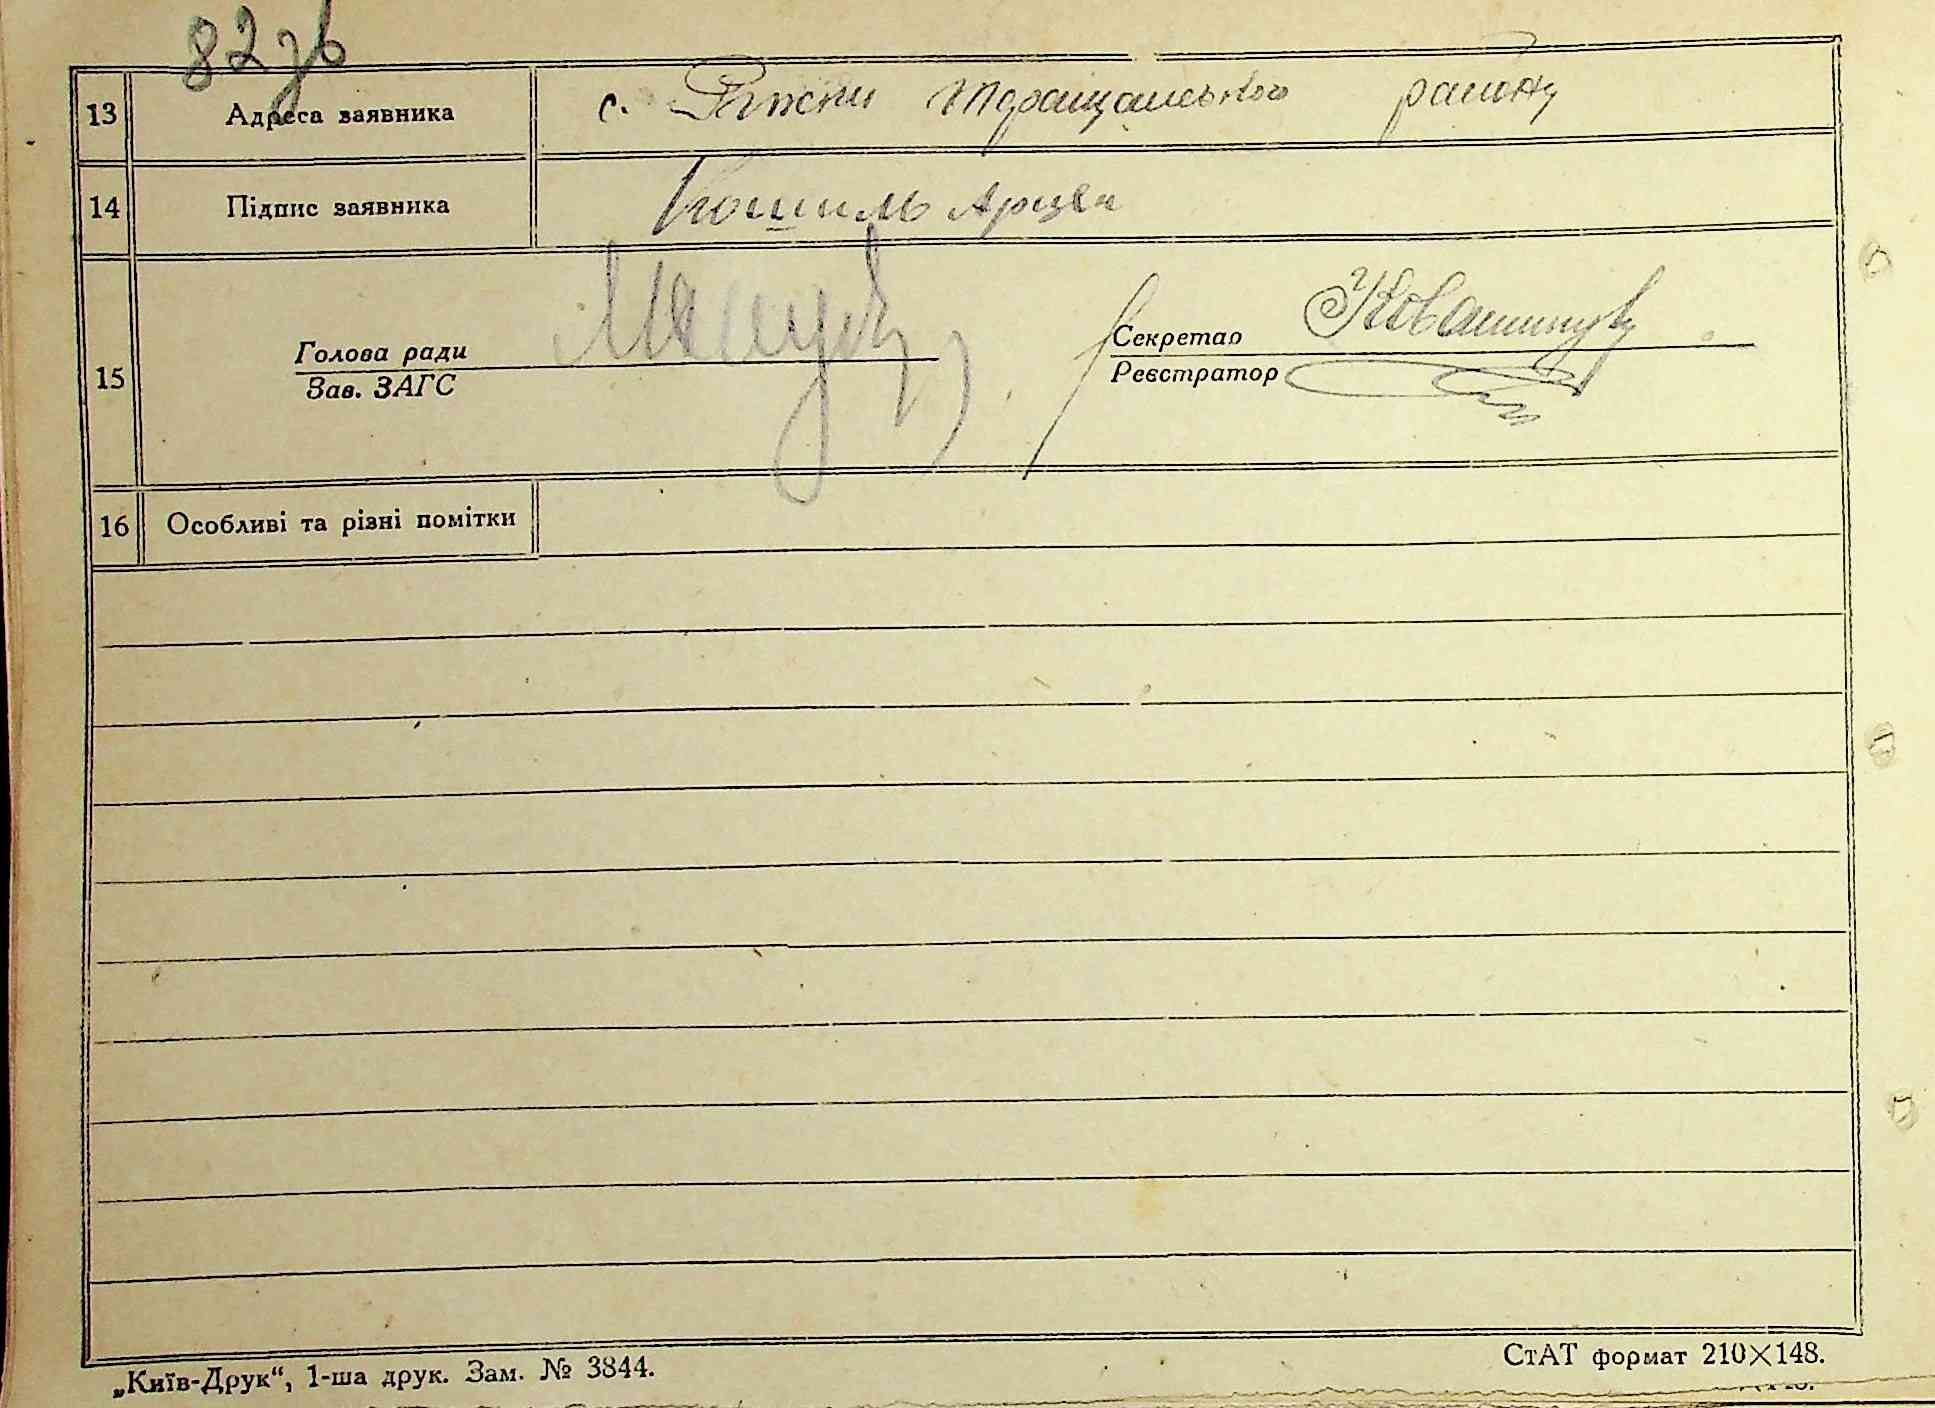 82 зв
13 Адреса заявника с. Ріжки Таращанського району
14 Підпис заявника Кошиль
15 Голова ради Секретар
Зав. ЗАГС Реєстратор
16 Особливі та різні помітки
„Київ-Друк“, 1-ша друк. Зам. № 3844. СтАТ формат 210×148.